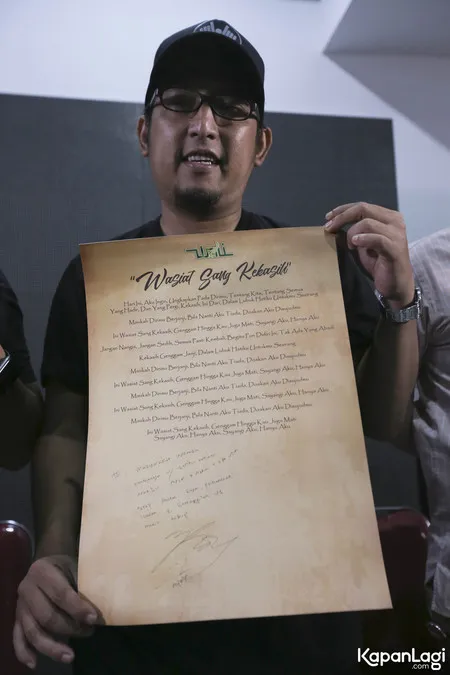 "Wasiat Sang Kekasih"
Hari Ini, Aku Ingin, Ungkapkan Pada Dirimu, Tentang Kita, Tentang Semua
Yang Hadir, Dan Yang Pergi, Kekasih, Ini Dari Dalam Lubuk Hatiku Untukmu, Seorang
Maukah Dirimu Berjanji, Bila Nanti Aku Tiada, Doakan Aku Disujudmu
Ini Wasiat Sang Kekasih, Genggam Hingga Kau Juga Mati, Sayangi Aku, Hanya Aku
Jangan Nangis, Jangan Sedih, Semua Pasti Kembali, Begitu Pun Dunia Ini, Tak Ada Yang Abadi
Kekasih Genggam Janji, Dalam Lubuk Hatiku Untukmu Seorang
Maukah Dirimu Berjanji, Bila Nanti Aku Tiada, Doakan Aku Disujudmu
Ini Wasiat Sang Kekasih, Genggam Hingga Kau, Juga Mati, Sayangi Aku, Hanya Aku
Maukah Dirimu Berjanji, Bila Nanti Aku Tiada, Doakan Aku Disujudmu
Ini Wasiat Sang Kekasih, Genggam Hingga Kau, Juga Mati, Sayangi Aku, Hanya Aku
Maukah Dirimu Berjanji, Bila Nanti Aku Tiada, Doakan Aku Disujudmu
Ini Wasiat Sang Kekasih, Genggam Hingga Kau, Juga Mati
Sayangi Aku, Hanya Aku, Sayangi Aku, Hanya Aku
KapanLagi
.com